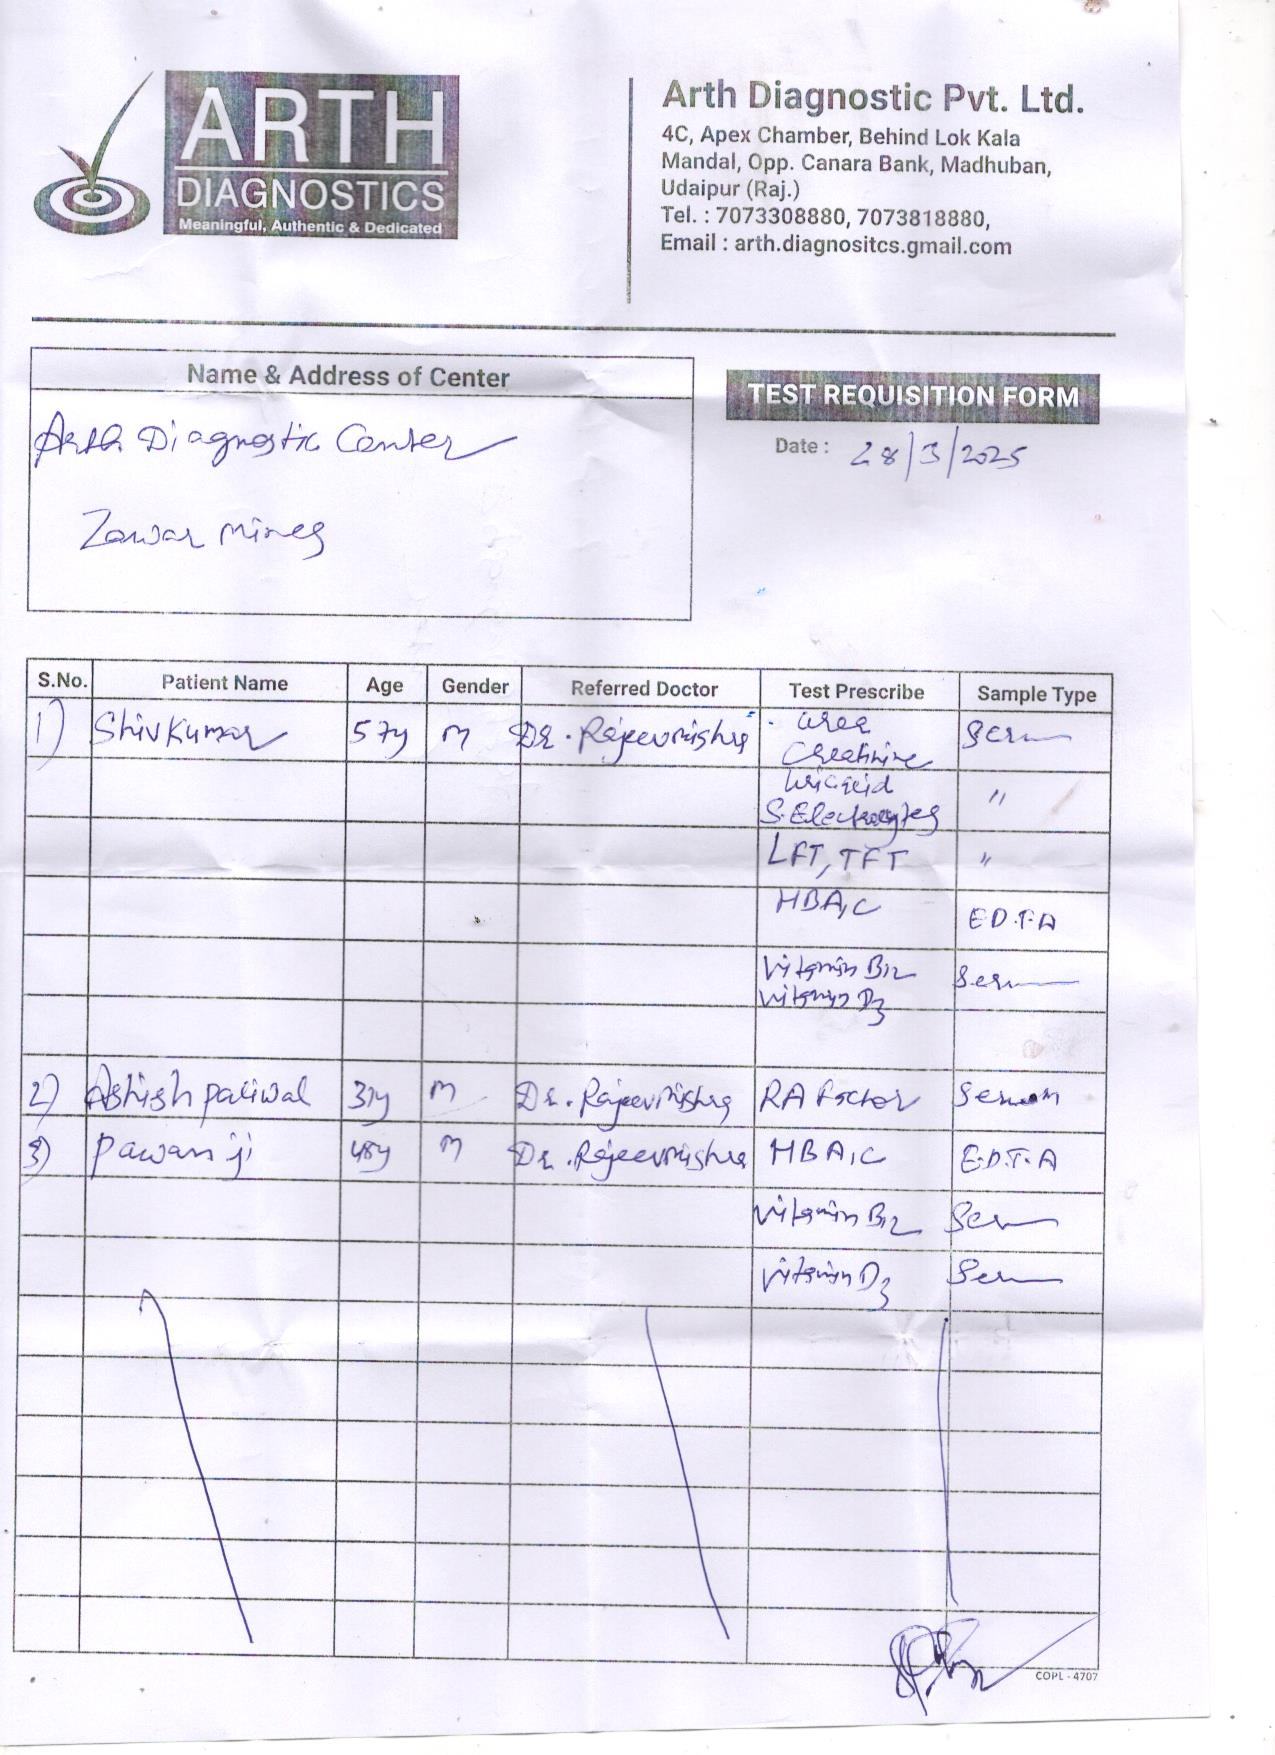 ARTH
DIAGNOSTICS
Meaningful, Authentic & Dedicated
Arth Diagnostic Pvt. Ltd.
4C, Apex Chamber, Behind Lok Kala
Mandal, Opp. Canara Bank, Madhuban,
Udaipur (Raj.)
Tel. : 7073308880, 7073818880,
Email : arth.diagnositcs.gmail.com
Name & Address of Center
Arth Diagnostic Center
Zawar Mines
TEST REQUISITION FORM
Date : 28/3/2025
S.No. Patient Name Age Gender Referred Doctor Test Prescribe Sample Type
1) Shiv Kumar 57y M Dr. Rajeev Mishra urea Serum
Creatinine
Uric acid
S. Electrolytes "
LFT, TFT "
HBA1C E.D.T.A
Vitamin B12 Serum
Vitamin D3
2) Ashish paliwal 31y M Dr. Rajeev Mishra RA factor Serum
3) Pawan ji 48y M Dr. Rajeev Mishra HBA1C E.D.T.A
Vitamin B12 Serum
Vitamin D3 Serum
COPL - 4707